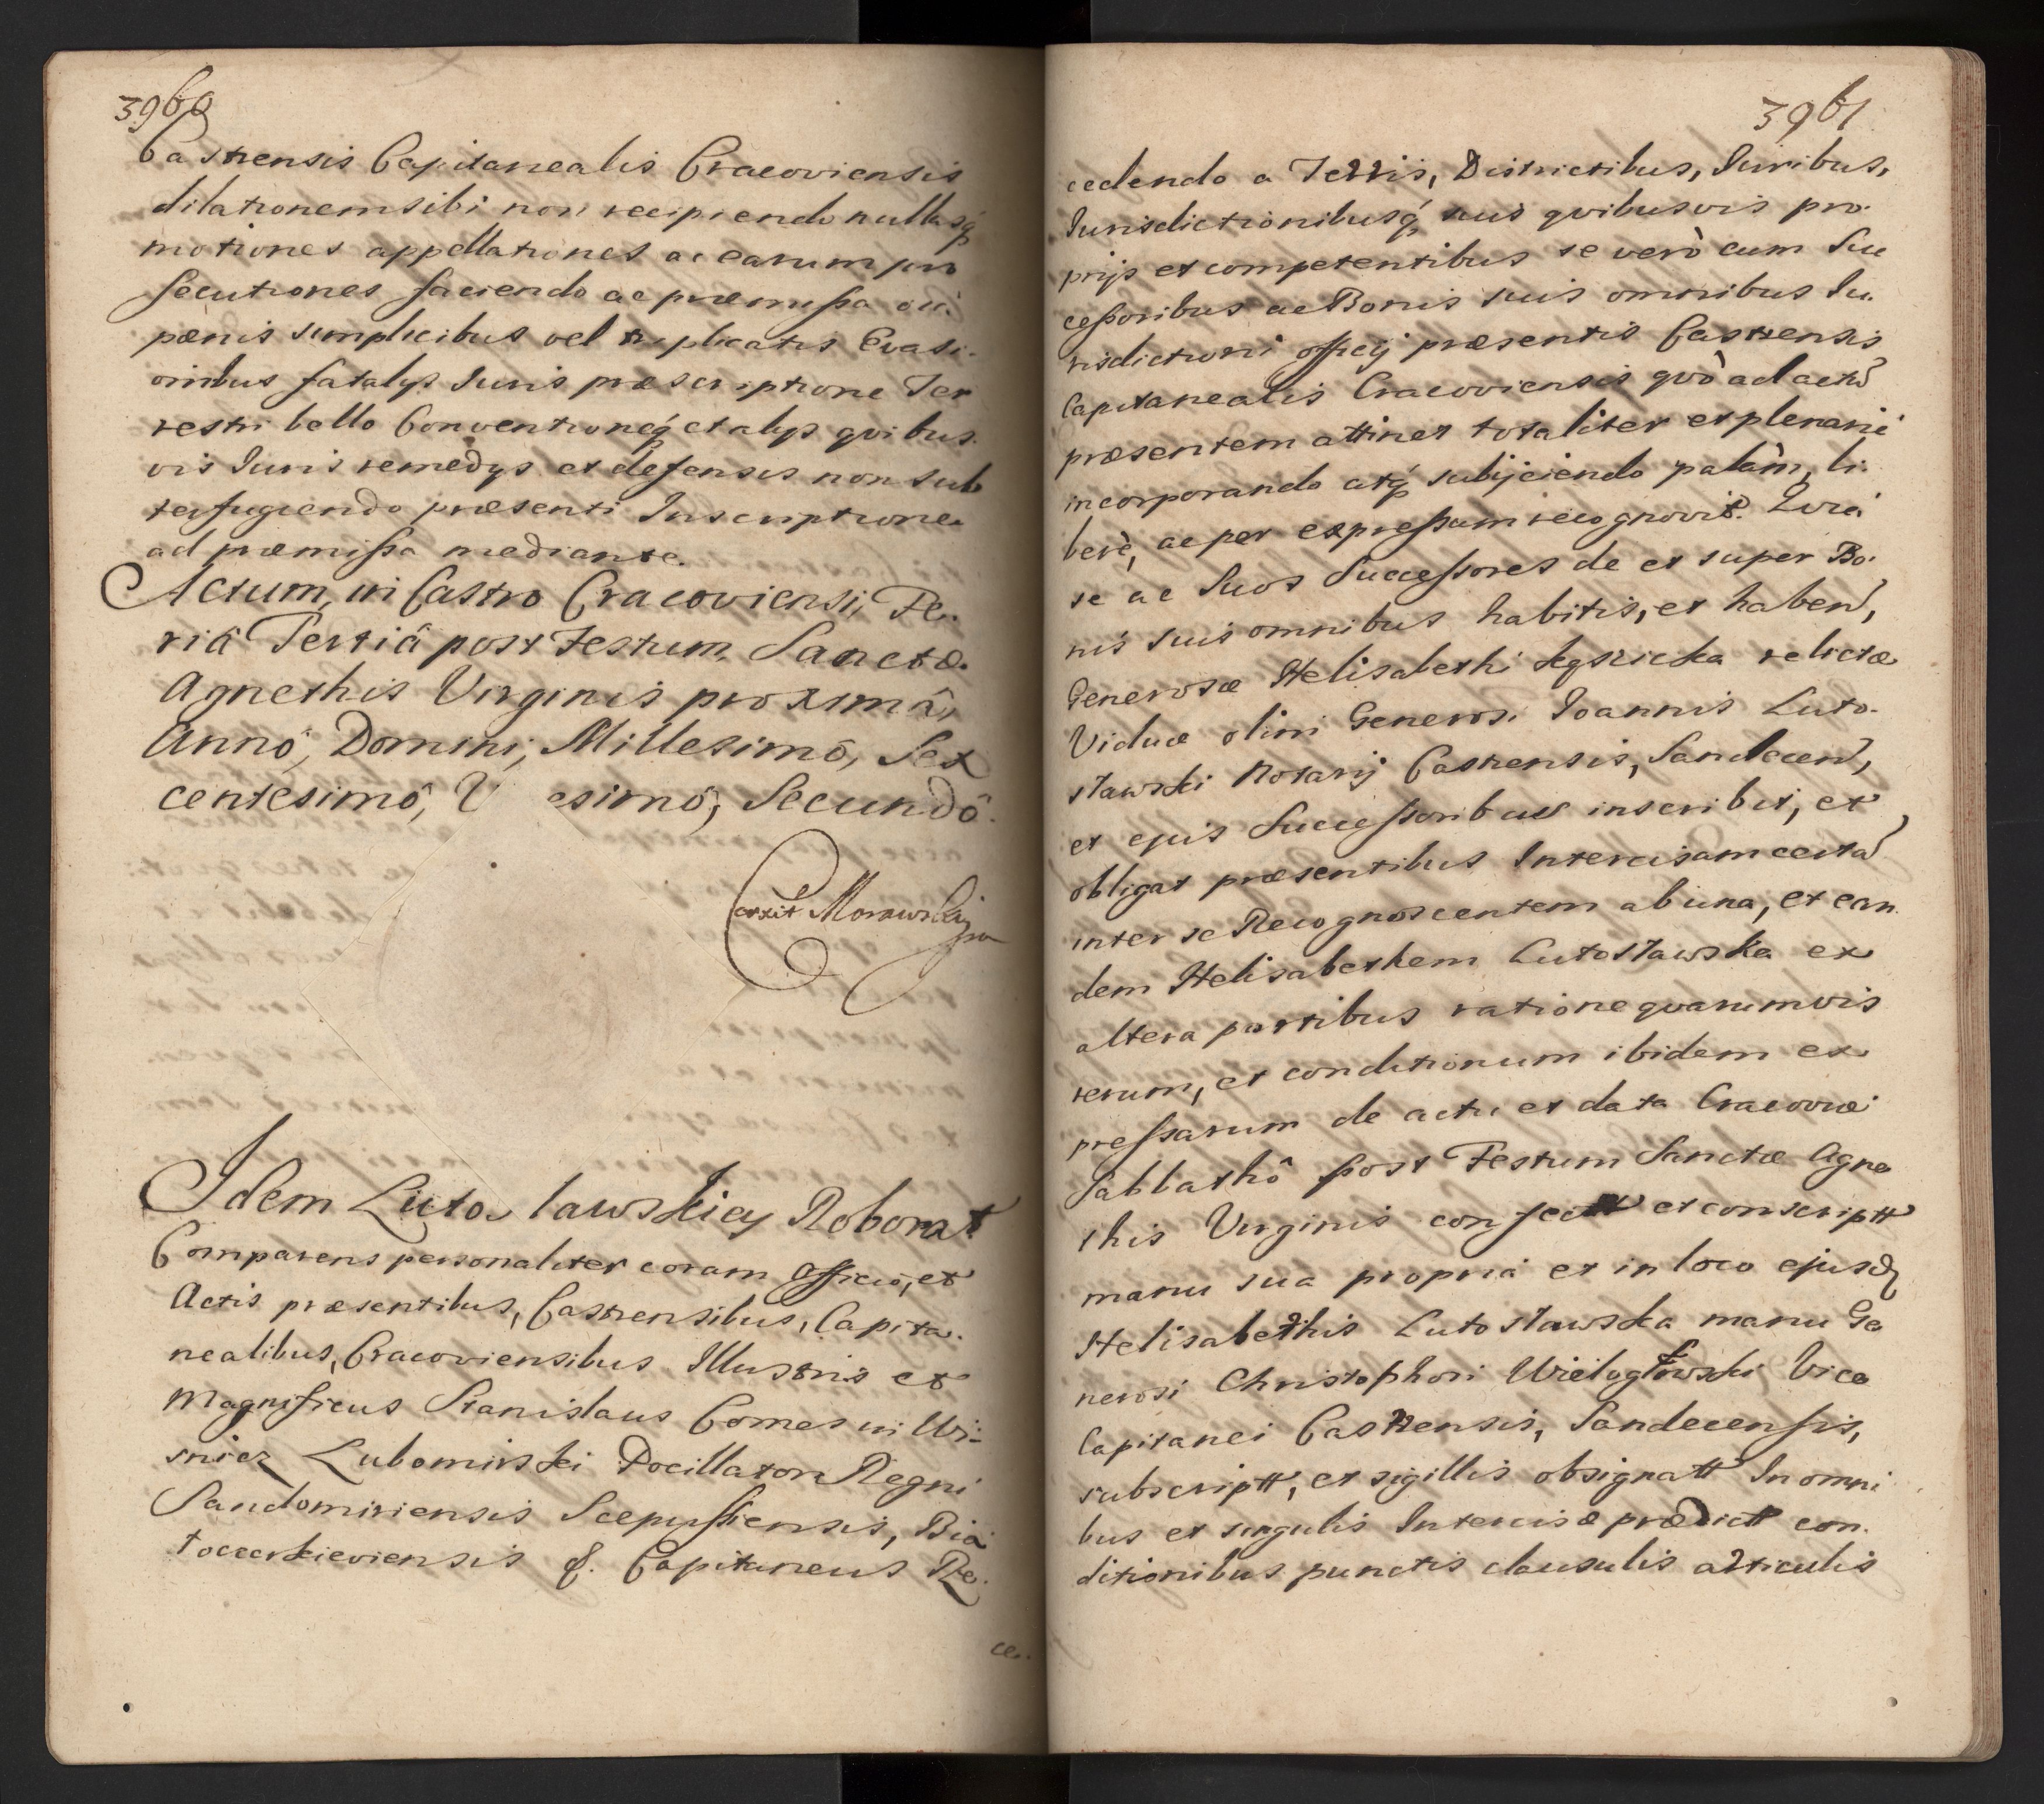 3960
Castrensis Capitanealis Cracoviensis
dilationem sibi non recipiendo nullasq́
motiones appellationes ac earum pro
secutiones faciendo ac præmissa
pænis simplicibus vel triplicatis Evasi-
onibus fatalijs Iuris præscriptione Ter
restri bello Conventioneq́ et alijs qvibus-
vis Iuris remedijs et defensis non sub
terfugiendo præsenti Inscriptione
ad præmissa mediante.
Actum, in Castro Cracoviensi, Fe-
riâ Tertiâ post Festum Sanctæ
Agnethis Virginis proximâ,
Annô, Domini, Millesimô, Sex
centesimô, V esimô, Secundô.
Correxit Morawski
mpa
Idem Lutoslawskiey Roborat
Comparens personaliter coram Officio, et
Actis præsentibus, Castrensibus, Capita-
nealibus, Cracoviensibus Illustris et
Magnificus Stanislaus Comes in Wi-
snicz Lubomirski Pocillator Regni
Sandomiriensis Scepussiensis, Bia
tocerkieviensis &. Capitaneus Re-
ce-
3961
cedendo a Terris, Districtibus, Iuribus,
Iurisdictionibusq́, suis qvibusvis pro-
prijs et competentibus se verò cum Suc
cessoribus ac Bonis suis omnibus Iu-
risdictioni officij præsentis Castrensis
Capitanealis Cracoviensis qvò ad actũ
præsentem attinet totaliter et plenariè
incorporando atq́ subijciendo palàm, li-
berè, ac per expressum recognovit. Qvia
se ac Suos Successores de et super Bo-
nis suis omnibus habitis, et habend,
Generosæ Helisabethi Legszicka relictæ
Viduæ olim Generosi Ioannis Luto-
stawski Notarij Castrensis, Sandecen,
et ejus Successoribus inscribit, et
obligat præsentibus Intercisam certã
inter se Recognoscentem ab una, et ean-
dem Helisabethem Lutostawska ex
altera partibus ratione qvarumvis
rerum, et conditionum ibidem ex
pressarum de actu et data Cracoviæ
Sabbathô post Festum Sanctæ Agne
this Virginis confectt et conscriptt
manu sua propria et in loco ejusd
Helisabethis Lutostawska manu Ge
nerosi Christophori Wielogłowski Vice
Capitanei Castrensis, Sandecensis,
subscriptt, et sigillis obsignatt In omni
bus et singulis Intercisæ prædictt con-
ditionibus punctis clausulis articulis